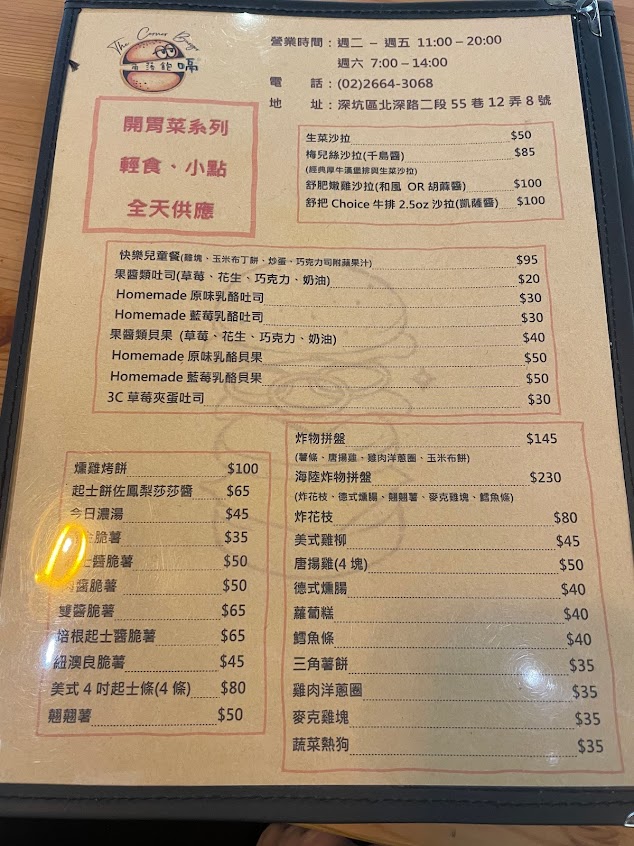 The Corner Burger
角落飽嗝
營業時間：週二 – 週五 11:00 – 20:00
週六 7:00 – 14:00
電 話：(02)2664-3068
地 址：深坑區北深路二段 55 巷 12 弄 8 號
開胃菜系列
輕食、小點
全天供應
生菜沙拉 $50
梅兒絲沙拉(千島醬) $85
(經典厚牛漢堡排與生菜沙拉)
舒肥嫩雞沙拉(和風 OR 胡蔴醬) $100
舒把 Choice 牛排 2.5oz 沙拉(凱薩醬) $100
快樂兒童餐(雞塊、玉米布丁餅、炒蛋、巧克力司附蘋果汁) $95
果醬類吐司(草莓、花生、巧克力、奶油) $20
Homemade 原味乳酪吐司 $30
Homemade 藍莓乳酪吐司 $30
果醬類貝果 (草莓、花生、巧克力、奶油) $40
Homemade 原味乳酪貝果 $50
Homemade 藍莓乳酪貝果 $50
3C 草莓夾蛋吐司 $30
燻雞烤餅 $100
起士餅佐鳳梨莎莎醬 $65
今日濃湯 $45
脆薯 $35
醬脆薯 $50
醬脆薯 $50
雙醬脆薯 $65
培根起士醬脆薯 $65
紐澳良脆薯 $45
美式 4 吋起士條(4 條) $80
翹翹薯 $50
炸物拼盤 $145
(薯條、唐揚雞、雞肉洋蔥圈、玉米布餅)
海陸炸物拼盤 $230
(炸花枝、德式燻腸、翹翹薯、麥克雞塊、鱈魚條)
炸花枝 $80
美式雞柳 $45
唐揚雞(4 塊) $50
德式燻腸 $40
蘿蔔糕 $40
鱈魚條 $40
三角薯餅 $35
雞肉洋蔥圈 $35
麥克雞塊 $35
蔬菜熱狗 $35